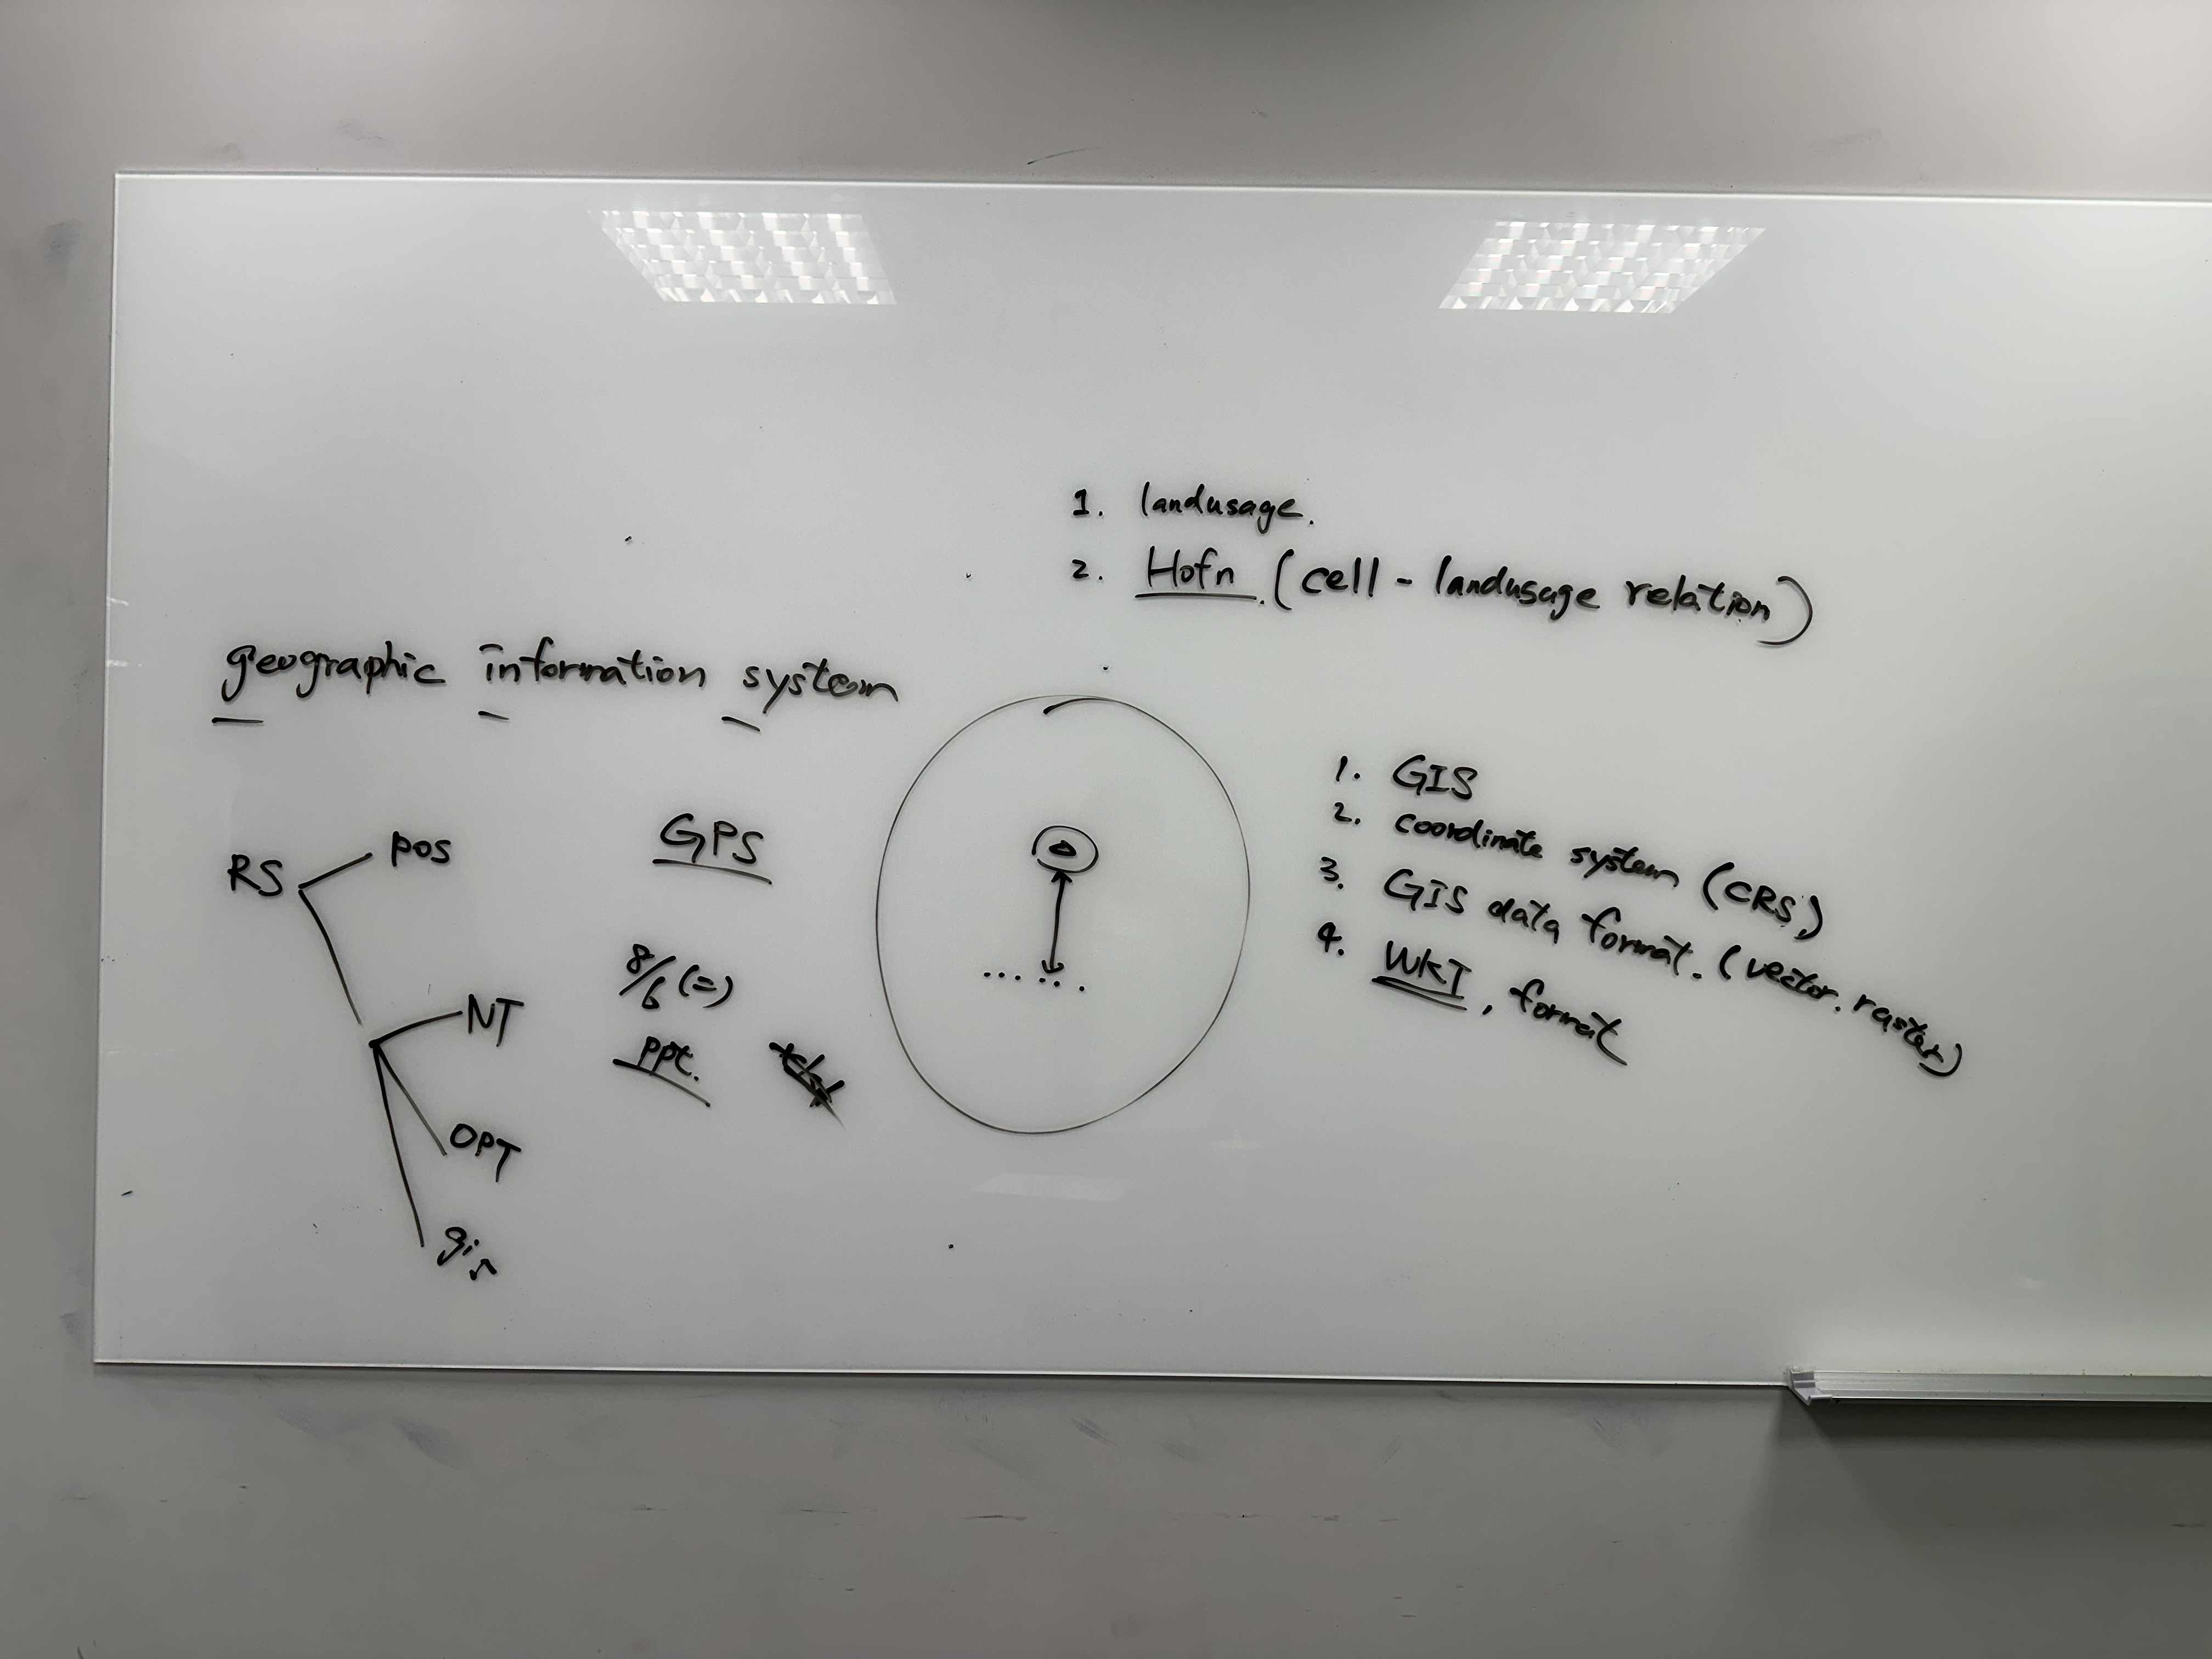 1. landusage.
2. Hofn. (cell - landusage relation)
geographic information system
RS
pos
NT
OPT
gis
GPS
8/6 (二)
ppt.
1. GIS
2. coordinate system (CRS)
3. GIS data format. (vector. raster)
4. WKT, format